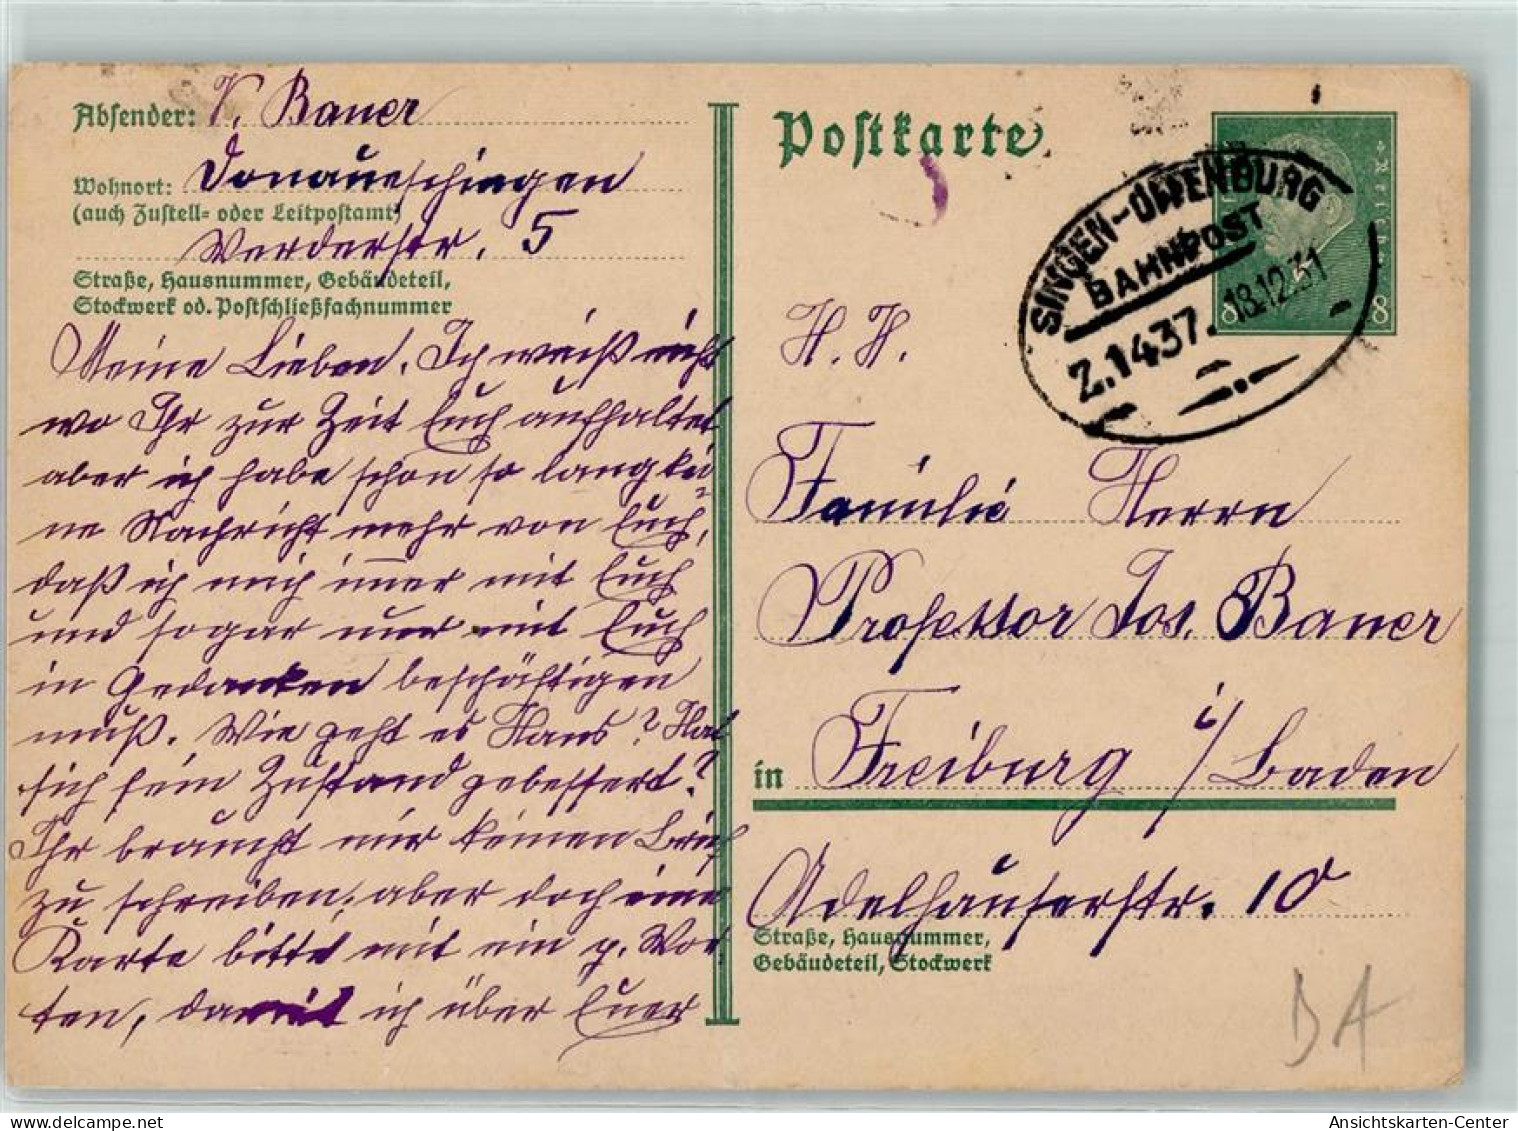 Absender: V. Bauer
Wohnort: Donaueschingen
(auch Zustell- oder Leitpostamt)
Werderstr. 5
Straße, Hausnummer, Gebäudeteil,
Stockwerk od. Postschließfachnummer
Meine Lieben. Ich weiß nicht
wo Ihr zur Zeit Euch aufhaltet
aber ich habe schon so lang kei
ne Nachricht mehr von Euch,
daß ich mich im̅er mit Euch
und sogar nur mit Euch
in Gedanken beschäftigen
muß. Wie geht es Hans? Hat
sich sein Zustand gebessert?
Ihr braucht mir keinen Brief
zu schreiben, aber doch eine
Karte bitte mit ein p. Wor-
ten, damit ich über Euer
Postkarte
SINGEN-OFFENBURG
BAHNPOST
Z.1437. 18.12.31
8 8
H. H.
Familie Herrn
Professor Jos. Bauer
in Freiburg i/Baden
Adelhauserstr. 10
Straße, Hausnummer,
Gebäudeteil, Stockwerk
BA
Ansichtskarten-Center